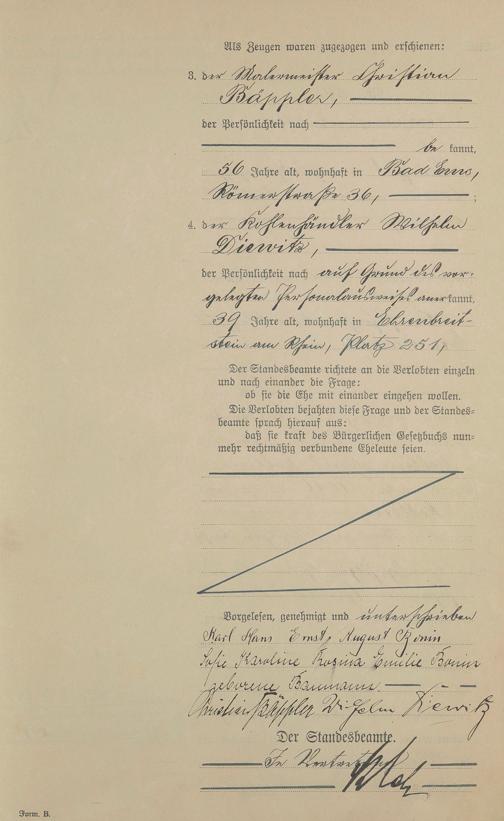 Als Zeugen waren zugezogen und erschienen:
3. der Malermeister Christian
Bäppler,
der Persönlichkeit nach
be kannt,
56 Jahre alt, wohnhaft in Bad Ems,
Römerstraße 36, ;
4. der Kohlenhändler Wilhelm
Diewitz,
der Persönlichkeit nach auf Grund des vor-
gelegten Personalausweises anerkannt,
39 Jahre alt, wohnhaft in Ehrenbreit-
stein am Rhein, Platz 251,
Der Standesbeamte richtete an die Verlobten einzeln
und nach einander die Frage:
ob sie die Ehe mit einander eingehen wollen.
Die Verlobten bejahten diese Frage und der Standes-
beamte sprach hierauf aus:
daß sie kraft des Bürgerlichen Gesetzbuchs nun-
mehr rechtmäßig verbundene Eheleute seien.
Vorgelesen, genehmigt und unterschrieben
Karl Hans Ernst August Bonin
Sofie Karoline Rosina Emilie Bonin
geborene Baumann
Christian Bäppler Wilhelm Diewitz
Der Standesbeamte.
In Vertretung
Form. B.